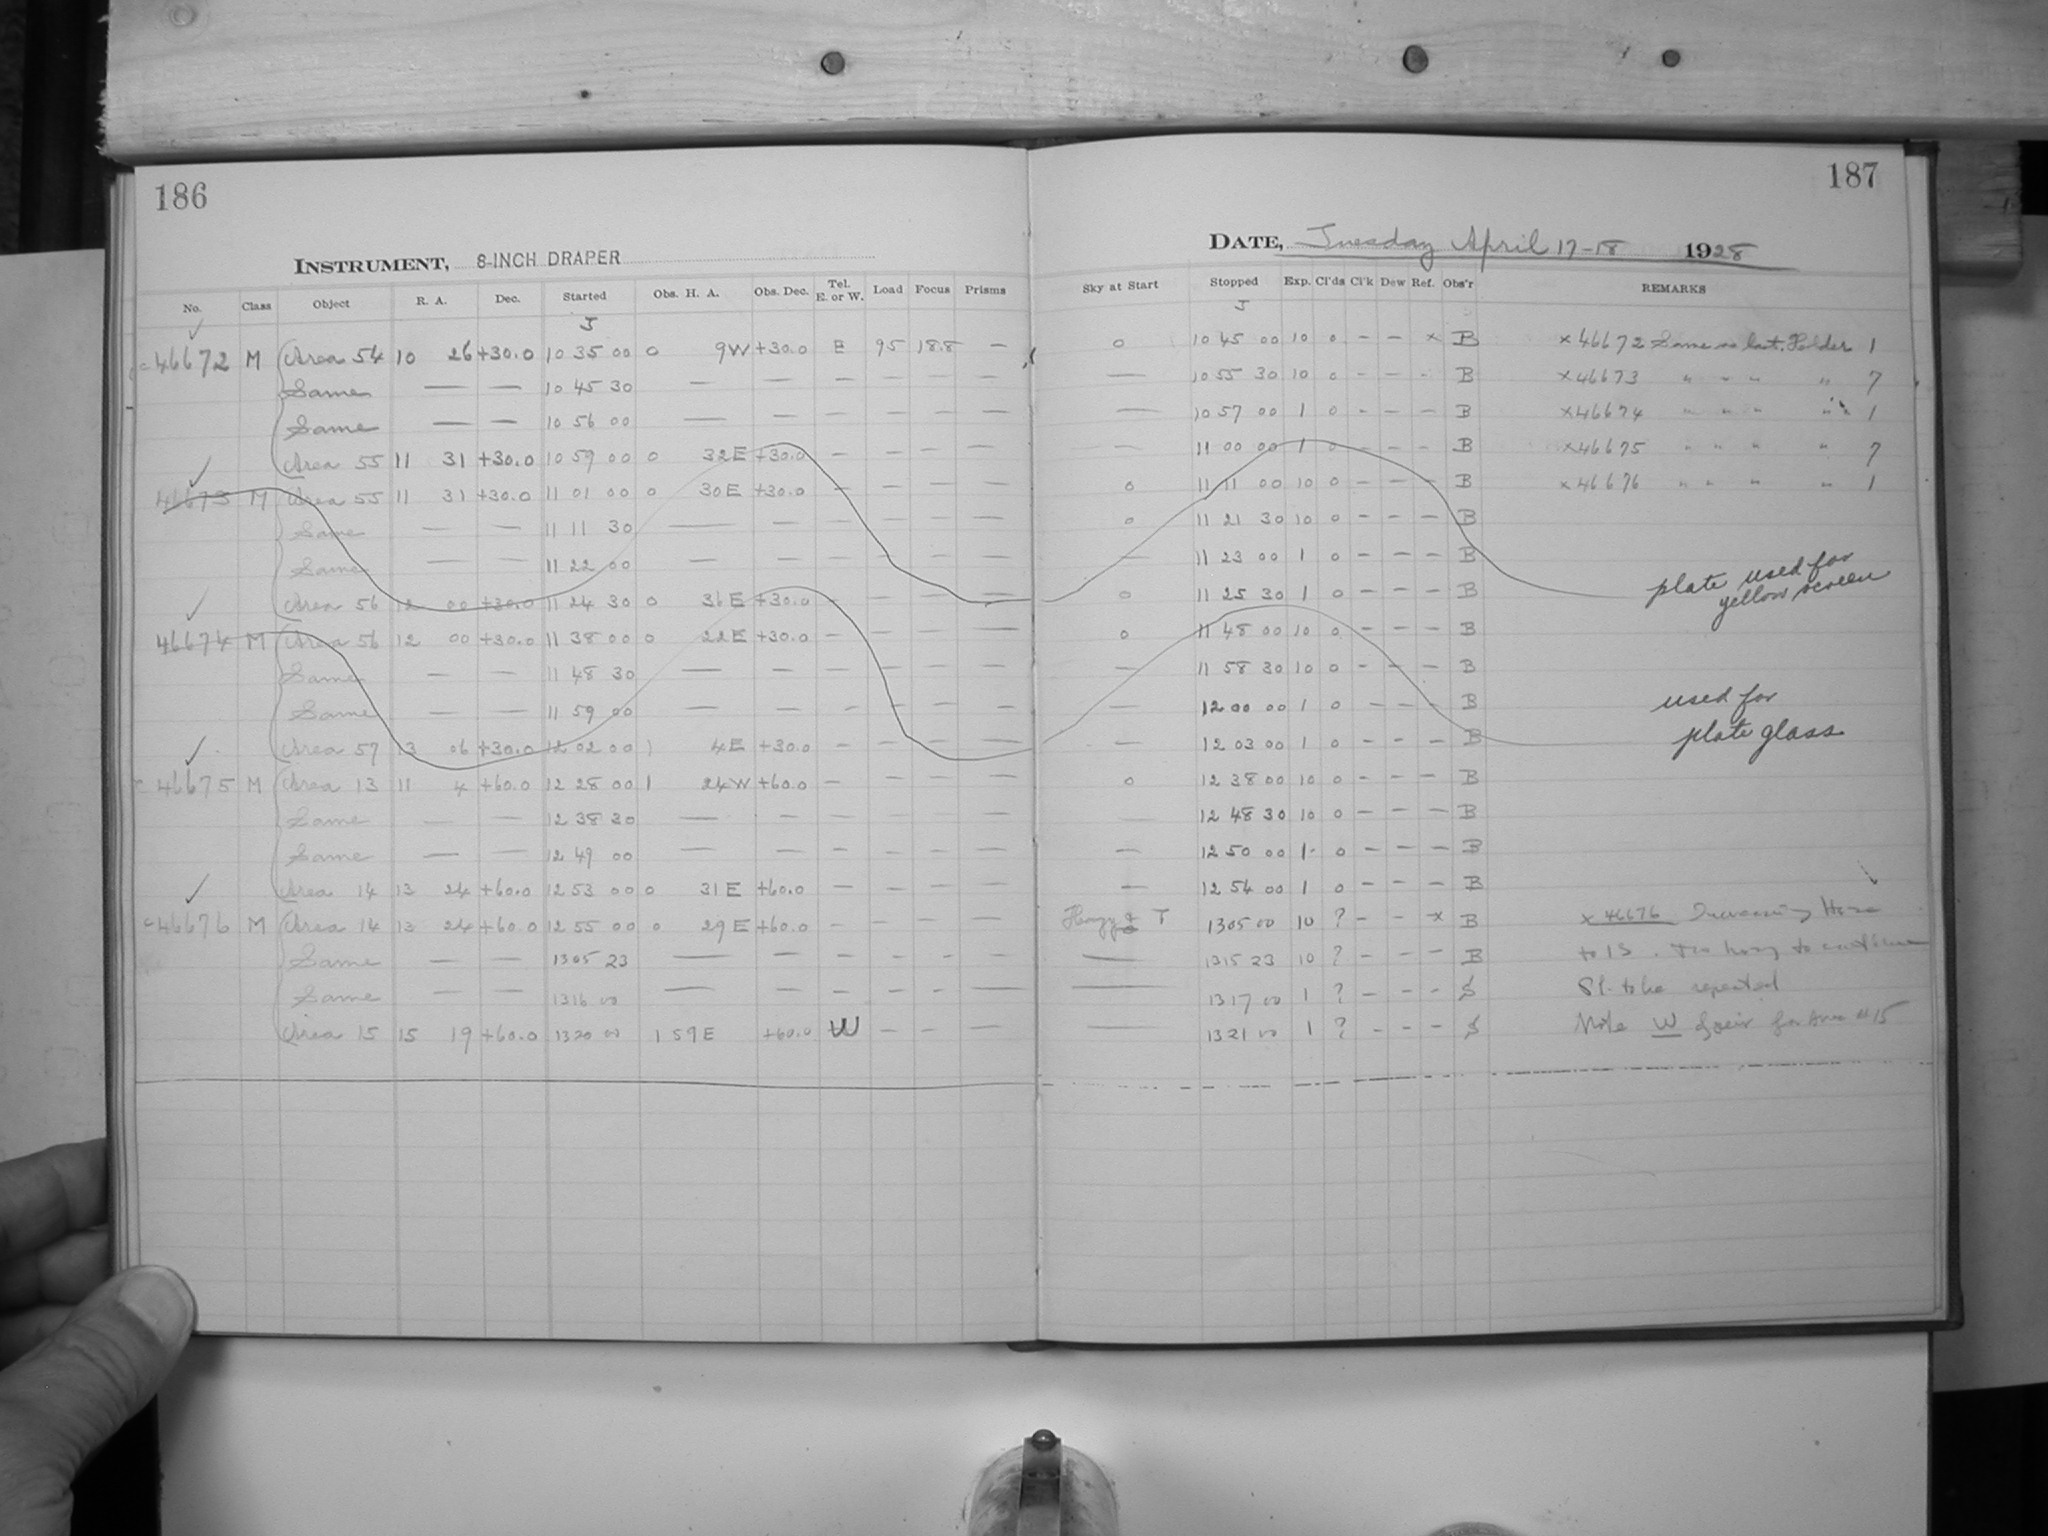 186
INSTRUMENT, 8-INCH DRAPER
No. Class Object R. A. Dec. Started Obs. H. A. Obs. Dec. Tel. E. or W. Load Focus Prisms
J
46672 M Area 54 10 26 +30.0 10 35 00 0 9W +30.0 E 95 18.8 —
Same — — 10 45 30 — — — — — —
Same — — 10 56 00 — — — — — —
Area 55 11 31 +30.0 10 59 00 0 32E +30.0 — — — —
46673 M Area 55 11 31 +30.0 11 01 00 0 30E +30.0 — — — —
Same — — 11 11 30 — — — — — —
Same — — 11 22 00 — — — — — —
Area 56 12 00 +30.0 11 24 30 0 36E +30.0 — — — —
46674 M Area 56 12 00 +30.0 11 38 00 0 22E +30.0 — — — —
Same — — 11 48 30 — — — — — —
Same — — 11 59 00 — — — — — —
Area 57 13 06 +30.0 12 02 00 1 4E +30.0 — — — —
46675 M Area 13 11 4 +60.0 12 28 00 1 24W +60.0 — — — —
Same — — 12 38 30 — — — — — —
Same — — 12 49 00 — — — — — —
Area 14 13 24 +60.0 12 53 00 0 31E +60.0 — — — —
46676 M Area 14 13 24 +60.0 12 55 00 0 29E +60.0 — — — —
Same — — 13 05 23 — — — — — —
Same — — 13 16 00 — — — — — —
Area 15 15 19 +60.0 13 20 00 1 59E +60.0 W — — —
187
DATE, Tuesday April 17-18 1928
Sky at Start Stopped Exp. Cl'ds Cl'k Dew Ref. Obs'r REMARKS
J
0 10 45 00 10 0 — — x B x46672 Same as last. Holder 1
— 10 55 30 10 0 — — — B x46673 " " " " 7
— 10 57 00 1 0 — — — B x46674 " " " " 1
— 11 00 00 1 0 — — — B x46675 " " " " 7
0 11 11 00 10 0 — — — B x46676 " " " " 1
0 11 21 30 10 0 — — — B
— 11 23 00 1 0 — — — B
0 11 25 30 1 0 — — — B plate used for
yellow screen
0 11 48 00 10 0 — — — B
— 11 58 30 10 0 — — — B
— 12 00 00 1 0 — — — B used for
— 12 03 00 1 0 — — — B plate glass
0 12 38 00 10 0 — — — B
12 48 30 10 0 — — — B
— 12 50 00 1 0 — — — B
— 12 54 00 1 0 — — — B
Hazy T 13 05 00 10 ? — — x B x 46676 Increasing Haze
— 13 15 23 10 ? — — — B to 15. Too hazy to continue
— 13 17 00 1 ? — — — S Pl. to be repeated
— 13 21 00 1 ? — — — S Note W for Area #15